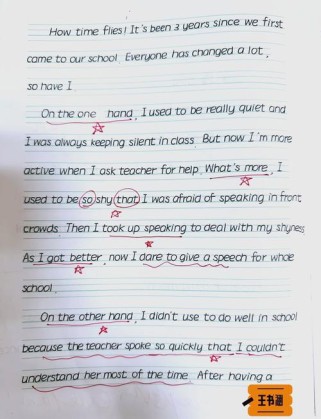 How time flies! It's been 3 years since we first
came to our school. Everyone has changed a lot,
so have I.
On the one hand, I used to be really quiet and
I was always keeping silent in class. But now I'm more
active when I ask teacher for help. What's more, I
used to be so shy that I was afraid of speaking in front
crowds. Then I took up speaking to deal with my shyness
As I got better, now I dare to give a speech for whole
school.
On the other hand, I didn't use to do well in school
because the teacher spoke so quickly that I couldn't
understand her most of the time. After having a
王书涵